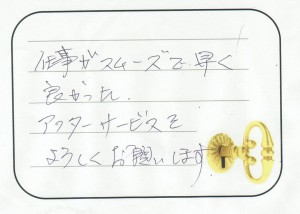 仕事がスムーズで早く
良かった.
アフターサービスを
よろしくお願いします